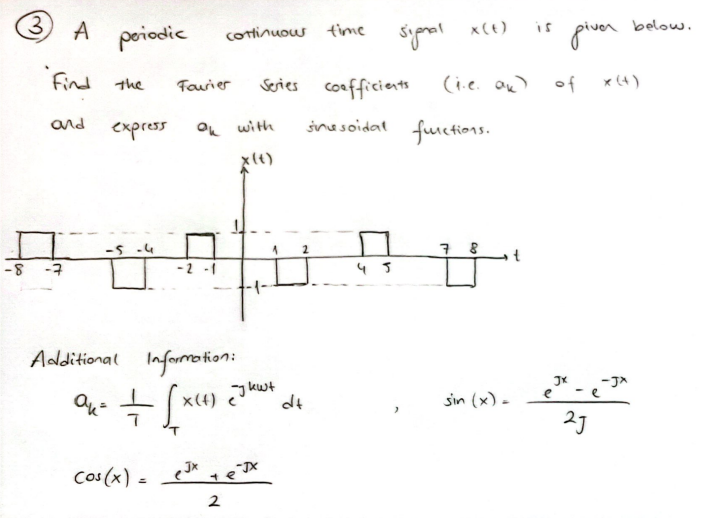 3 A periodic continuous time signal x(t) is given below.
Find the Fourier Series coefficients (i.e. ak) of x(t)
and express ak with sinusoidal functions.
x(t)
1
-5 -4 1 2 7 8 t
-8 -7 -2 -1 4 5
-1
Additional Information:
ak = 1/T ∫T x(t) e^-jkwt dt , sin(x) = (e^Jx - e^-Jx)/2J
cos(x) = (e^Jx + e^-Jx)/2